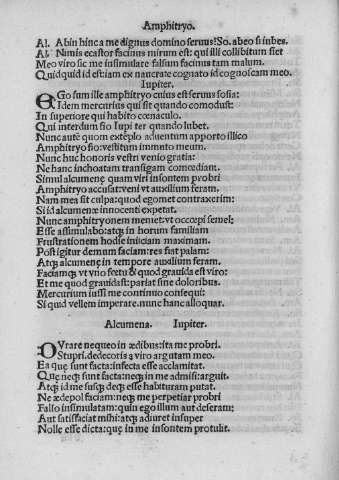 Amphitryo.
Al. Abin hinc a me dignus domino seruus? So. abeo si iubes.
Al. Nimis ecastor facinus mirum est: qui illi collibitum siet
Meo viro sic me insimulare falsum facinus tam malum.
Quidquid id est: iam ex naucrate cognato id cognoscam meo.
Iupiter.
EGo sum ille amphitryo cuius est seruus sosia:
Idem mercurius qui sit quando comodust:
In superiore qui habito cœnaculo.
Qui interdum fio Iupiter quando lubet.
Nunc autē quom extēplo aduentum apporto illico
Amphitryo fio: vestitum immuto meum.
Nunc huc honoris vestri venio gratia:
Ne hanc inchoatam transigam comœdiam.
Simul alcumenę quam viri insontem probri
Amphitryo accusat: veni vt auxilium feram.
Nam mea sit culpa: quod egomet contraxerim:
Si id alcumenæ innocenti expetat.
Nunc amphitryonem memet: vt occœpi semel:
Esse assimulabo: atqȝ in horum familiam
Frustrationem hodie iniiciam maximam.
Post igitur demum faciam: res fiat palam:
Atqȝ alcumenę in tempore auxilium feram.
Faciamqȝ vt vno fœtu & quod grauida est viro:
Et me quod grauidast: pariat sine doloribus.
Mercurium iussi me continuo consequi:
Si quid vellem imperare. nunc hanc alloquar.
Alcumena. Iupiter.
DVrare nequeo in ædibus: ita me probri.
Stupri. dedecoris a viro argutam meo.
Ea quę sunt facta: infecta esse acclamitat.
Quę neqȝ sunt facta: neqȝ in me admisi: arguit.
Atqȝ id me susqȝ deqȝ esse habituram putat.
Ne ædepol faciam: neqȝ me perpetiar probri
Falso insimulatam: quin ego illum aut deseram:
Aut satisfaciat mihi: atqȝ adiuret insuper
Nolle esse dicta: quę in me insontem protulit.